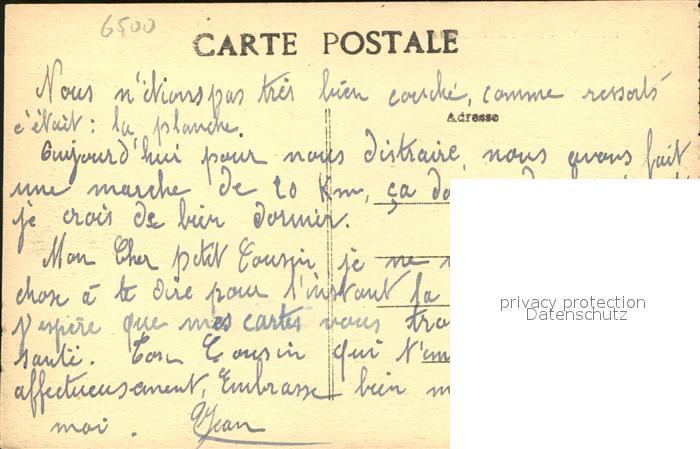 6500
CARTE POSTALE
Nous n'étions pas très bien couché, comme ressorts
c'était : la planche.
Adresse
Aujourd'hui pour nous distraire, nous avons fait
une marche de 20 Km, ça
je crois de bien dormir.
Mon Cher petit Cousin je ne
chose à te dire pour l'instant
J'espère que mes cartes vous
santé. Ton Cousin qui t'em
affectueusement, Embrasse bien
moi. Jean
privacy protection
Datenschutz